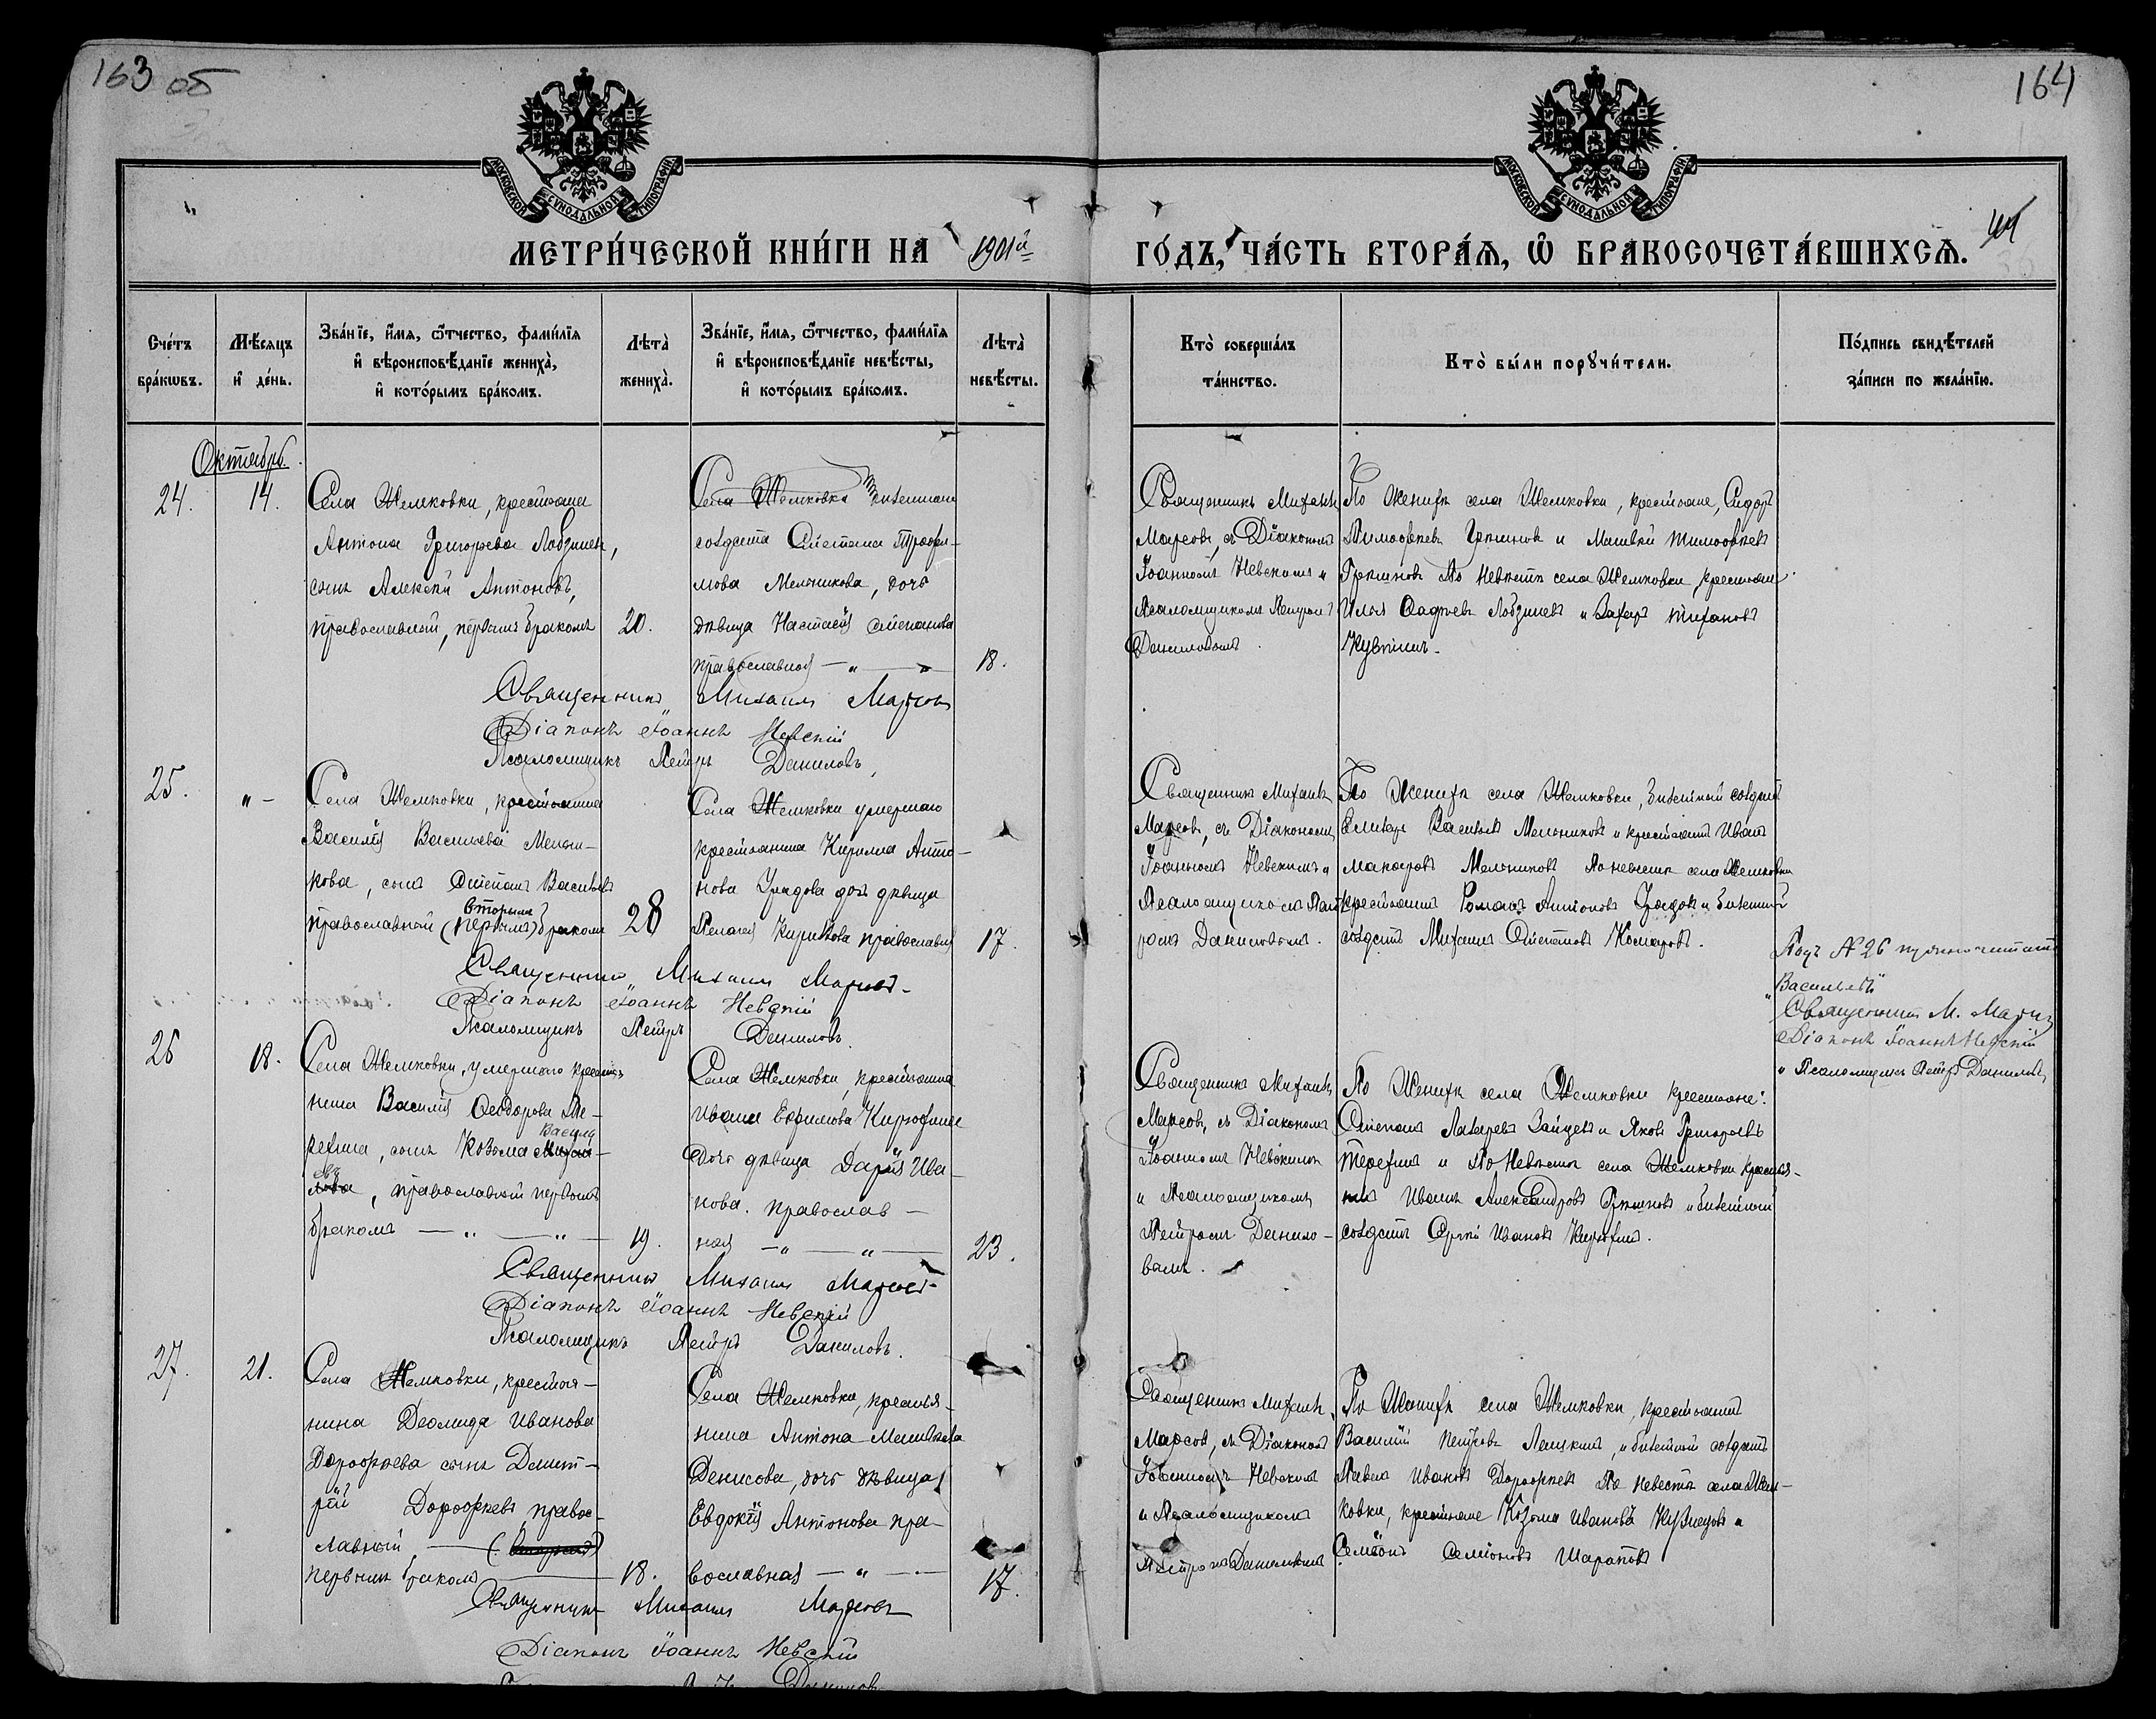 163 об
164
МОСКОВСКОЙ СѴНОДАЛЬНОЙ ТИПОГРАФІИ
МОСКОВСКОЙ СѴНОДАЛЬНОЙ ТИПОГРАФІИ
МЕТРИ́ЧЕСКОЙ КНИ́ГИ НА 1901й
ГО́ДЪ, ЧА́СТЬ ВТОРА́Я, Ѽ БРАКОСОЧЕТА́ВШИХСЯ.
Сче́тъ
бра́кѡвъ.
Мѣ́сяцъ
и҆ де́нь.
Зва́нїе, и҆́мя, ѻ҆́тчество, фами́лїя
и҆ вѣроисповѣ́данїе жениха̀,
и҆ кото́рымъ бра́комъ.
Лѣта̀
жениха̀.
Зва́нїе, и҆́мя, ѻ҆́тчество, фами́лїя
и҆ вѣроисповѣ́данїе невѣ́сты,
и҆ кото́рымъ бра́комъ.
Лѣта̀
невѣ́сты.
Кто̀ соверша́лъ
та́инство.
Кто̀ бы́ли порꙋчи́тели.
По́дпись свидѣ́телей
за́писи по жела́нїю.
Октябрь.
24.
14.
Села Шемковки, крестьяна
Антона Григорьева Лобзинев,
сынъ Алексѣй Антоновъ,
православный, первымъ бракомъ
20.
Села Шемковки билетнаго
солдата Степана Трофи-
мова Мельникова, дочь
дѣвица Настасія Степанова
православная — „ — „
18.
Священникъ Михаилъ
Марсовъ, съ Діакономъ
Іоанномъ Невскимъ и
Псаломщикомъ Петромъ
Даниловымъ.
По Женихѣ села Шемковки, крестьяне, Сидоръ
Тимофѣевъ и Матвѣй Тимофѣевъ
По Невѣстѣ села Шемковки, крестьяне
Илья Лобзинев и Захаръ Тихоновъ
Священникъ Михаилъ Марсовъ
Діаконъ Іоаннъ Невскій
Псаломщикъ Петръ Даниловъ,
25.
„ –
Села Шемковки, крестьянина
Василія Васильева Мельни-
кова, сынъ Степанъ Васильевъ
вторымъ
православный (первымъ) бракомъ
28
Села Шемковки умершаго
крестьянина Кирилла Анто-
нова Урядова дочь дѣвица
Пелагея Кирилова православная
17.
Священникъ Михаилъ
Марсовъ, съ Діакономъ
Іоанномъ Невскимъ и
Псаломщикомъ Пет-
ромъ Даниловымъ.
По Женихѣ села Шемковки, билетный солдатъ
Васильевъ Мельниковъ и крестьянинъ Иванъ
Макаровъ Мельниковъ По невѣстѣ села Шемковки
крестьянинъ Романъ Антоновъ Урядовъ и билетный
солдатъ Михаилъ Степановъ Комаровъ.
Священникъ Михаилъ Марсовъ
Діаконъ Іоаннъ Невскій
Псаломщикъ Петръ Даниловъ.
Подъ № 26 читать
„Васильевъ“
Священникъ М. Марсовъ
Діаконъ Іоаннъ Невскій
„ Псаломщикъ Петръ Даниловъ
26
18.
Села Шемковки, умершаго крестья-
нина Василія Ѳеодорова Те-
рехина, сынъ Козьма Михаи-
Василь
евъ
лова, православный первымъ
бракомъ — „ — „ —
19.
Села Шемковки, крестьянина
Ивана Ефимова Кирюхина
Дочь дѣвица Дарія Ива-
нова. православ—
ная — „ — „ —
23.
Священникъ Михаилъ
Марсовъ, съ Діакономъ
Іоанномъ Невскимъ
и Псаломщикомъ
Петромъ Данило-
вымъ.
По Женихѣ села Шемковки крестьяне:
Степанъ Лазаревъ Зайцевъ и Яковъ Григорьевъ
Терехинъ и По Невѣстѣ села Шемковки крестья-
нинъ Иванъ Александровъ и билетный
солдатъ Сергѣй Ивановъ Кирюхинъ.
Священникъ Михаилъ Марсовъ
Діаконъ Іоаннъ Невскій
Псаломщикъ Петръ Даниловъ.
27.
21.
Села Шемковки, крестья-
нина Деомида Иванова
Дорофѣева сынъ Димит-
рій Дорофѣевъ правос-
лавный — (вторымъ)
первымъ бракомъ —
18.
Села Шемковки, крестья-
нина Антона Матвѣева
Денисова, дочь дѣвица
Евдокія Антонова пра-
вославная — „ —
17.
Священникъ Михаилъ
Марсовъ, съ Діакономъ
Іоанномъ Невскимъ
и Псаломщикомъ
Петромъ Даниловымъ
По Женихѣ села Шемковки, крестьянинъ
Василій Петровъ и билетный солдатъ
Павелъ Ивановъ Дорофѣевъ По Невѣстѣ села Шем-
ковки, крестьяне Козьма Ивановъ Кузнецовъ и
Семёонъ Семіоновъ Шараповъ
Священникъ Михаилъ Марсовъ
Діаконъ Іоаннъ Невскій